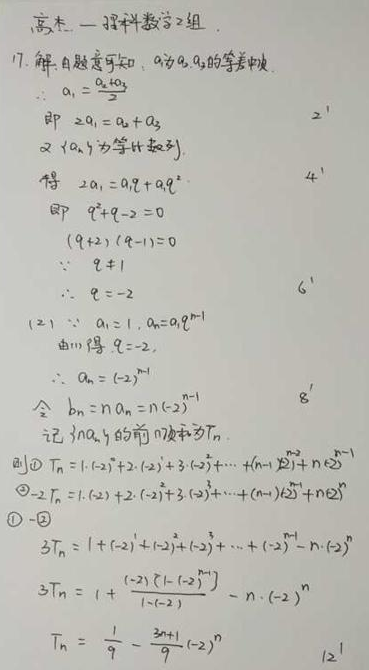 高杰 — 理科数学2组.
17. 解: 由题意可知, a₁为a₂.a₃的等差中项.
∴ a₁ = (a₂+a₃)/2
即 2a₁ = a₂ + a₃ 2'
又 {aₙ}为等比数列.
得 2a₁ = a₁q + a₁q². 4'
即 q²+q-2=0
(q+2)(q-1)=0
∵ q≠1
∴ q=-2 6'
(2) ∵ a₁=1, aₙ=a₁qⁿ⁻¹
由(1)得 q=-2,
∴ aₙ = (-2)ⁿ⁻¹
令 bₙ = naₙ = n(-2)ⁿ⁻¹ 8'
记{naₙ}的前n项和为Tₙ.
则① Tₙ = 1·(-2)⁰+2·(-2)¹+3·(-2)²+⋯+(n-1)(-2)ⁿ⁻²+n(-2)ⁿ⁻¹
②-2Tₙ = 1·(-2)+2·(-2)²+3·(-2)³+⋯+(n-1)(-2)ⁿ⁻¹+n(-2)ⁿ
①-②
3Tₙ = 1+(-2)¹+(-2)²+(-2)³+⋯+(-2)ⁿ⁻¹-n·(-2)ⁿ
3Tₙ = 1 + (-2)[1-(-2)ⁿ⁻¹]/1-(-2) - n·(-2)ⁿ
Tₙ = 1/9 - (3n+1)/9 (-2)ⁿ 12'